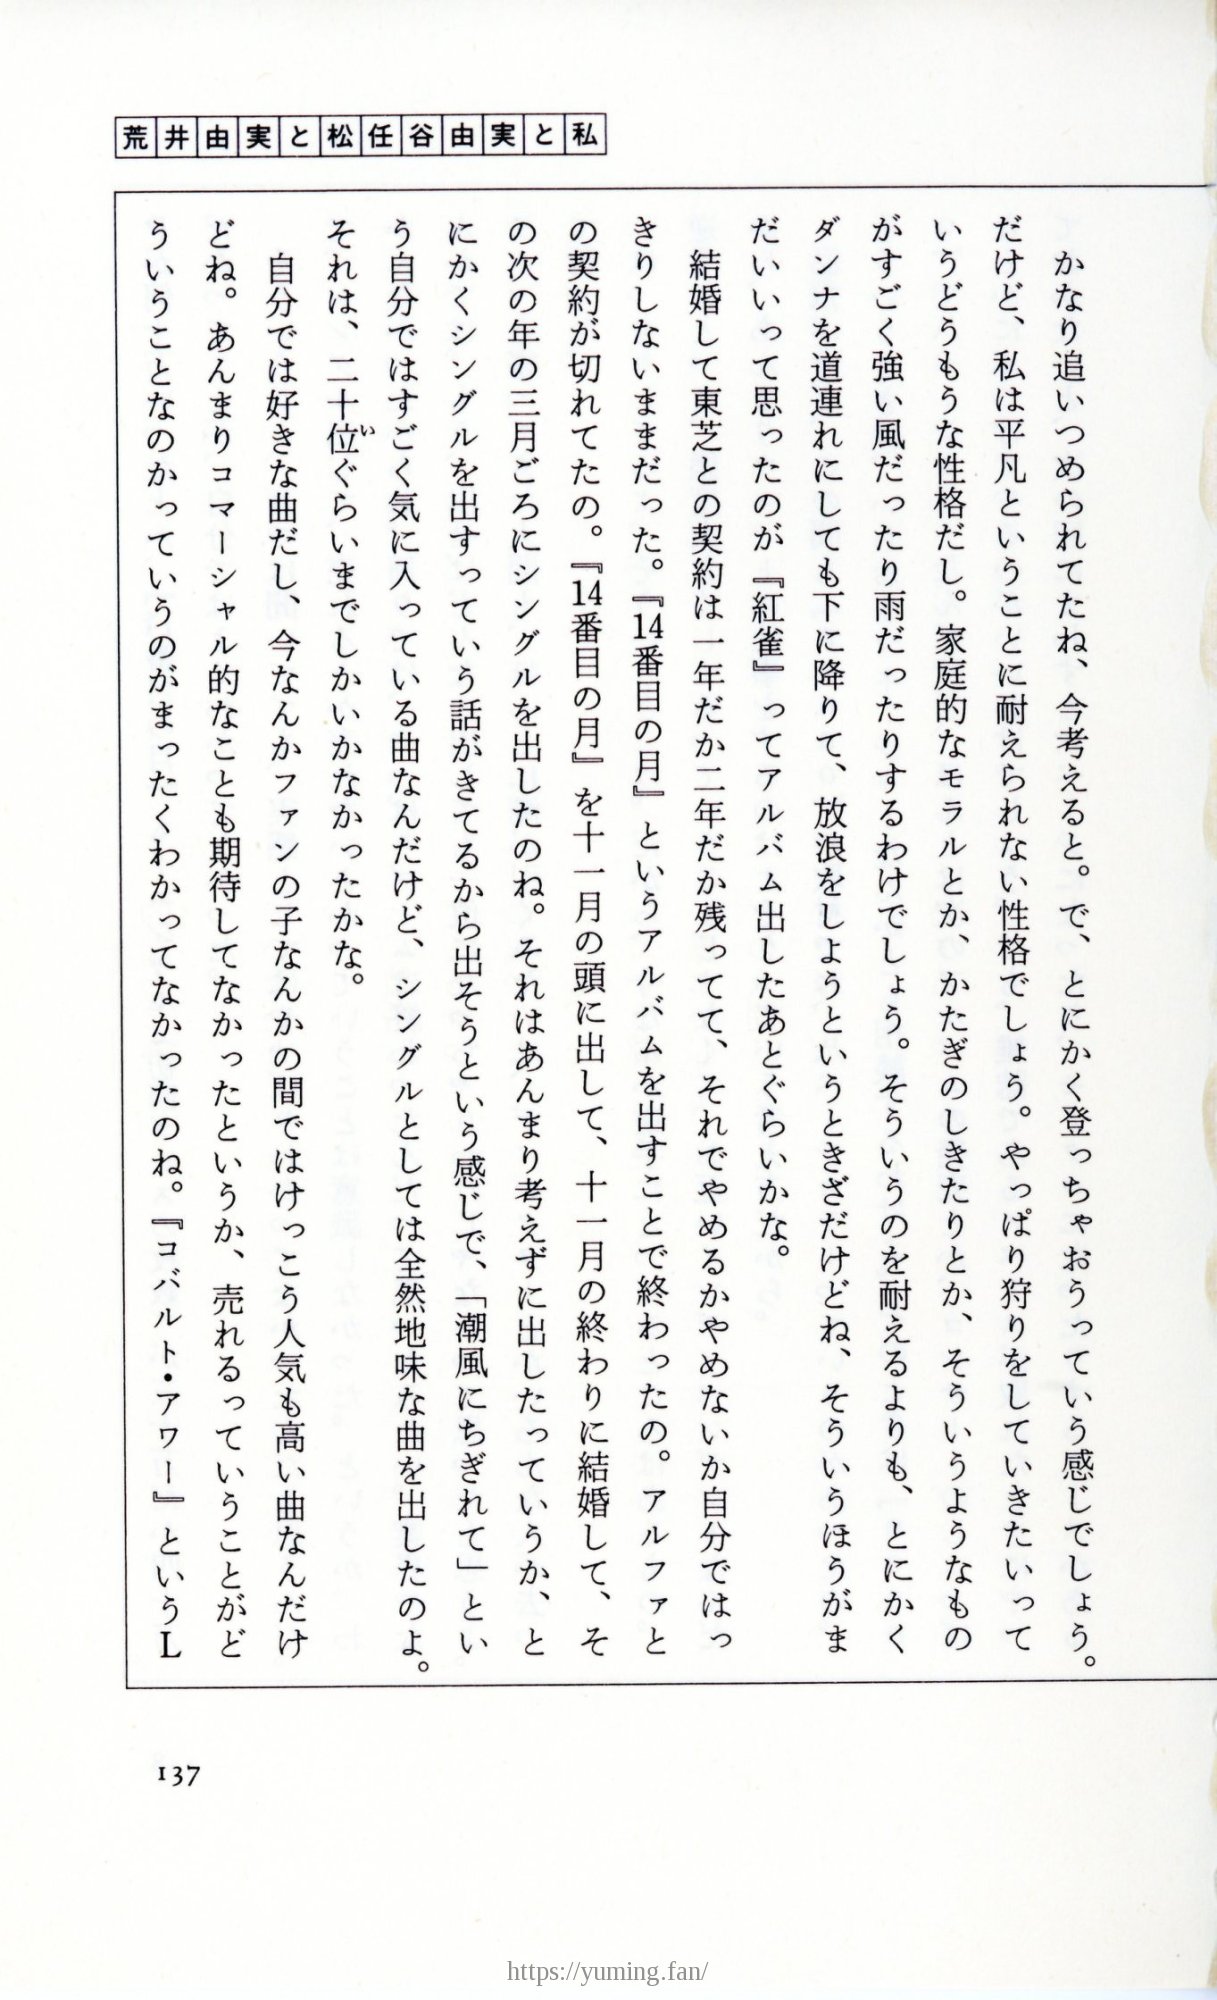 荒井由実と松任谷由実と私
かなり追いつめられてたね、今考えると。で、とにかく登っちゃおうっていう感じでしょう。
だけど、私は平凡ということに耐えられない性格でしょう。やっぱり狩りをしていきたいって
いうどうもうな性格だし。家庭的なモラルとか、かたぎのしきたりとか、そういうようなもの
がすごく強い風だったり雨だったりするわけでしょう。そういうのを耐えるよりも、とにかく
ダンナを道連れにしても下に降りて、放浪をしようというときざだけどね、そういうほうがま
だいいって思ったのが『紅雀』ってアルバム出したあとぐらいかな。
結婚して東芝との契約は一年だか二年だか残ってて、それでやめるかやめないか自分ではっ
きりしないままだった。『14番目の月』というアルバムを出すことで終わったの。アルファと
の契約が切れてたの。『14番目の月』を十一月の頭に出して、十一月の終わりに結婚して、そ
の次の年の三月ごろにシングルを出したのね。それはあんまり考えずに出したっていうか、と
にかくシングルを出すっていう話がきてるから出そうという感じで、「潮風にちぎれて」とい
う自分ではすごく気に入っている曲なんだけど、シングルとしては全然地味な曲を出したのよ。
それは、二十位ぐらいまでしかいかなかったかな。
い
自分では好きな曲だし、今なんかファンの子なんかの間ではけっこう人気も高い曲なんだけ
どね。あんまりコマーシャル的なことも期待してなかったというか、売れるっていうことがど
ういうことなのかっていうのがまったくわかってなかったのね。『コバルト・アワー』というL
137
https://yuming.fan/